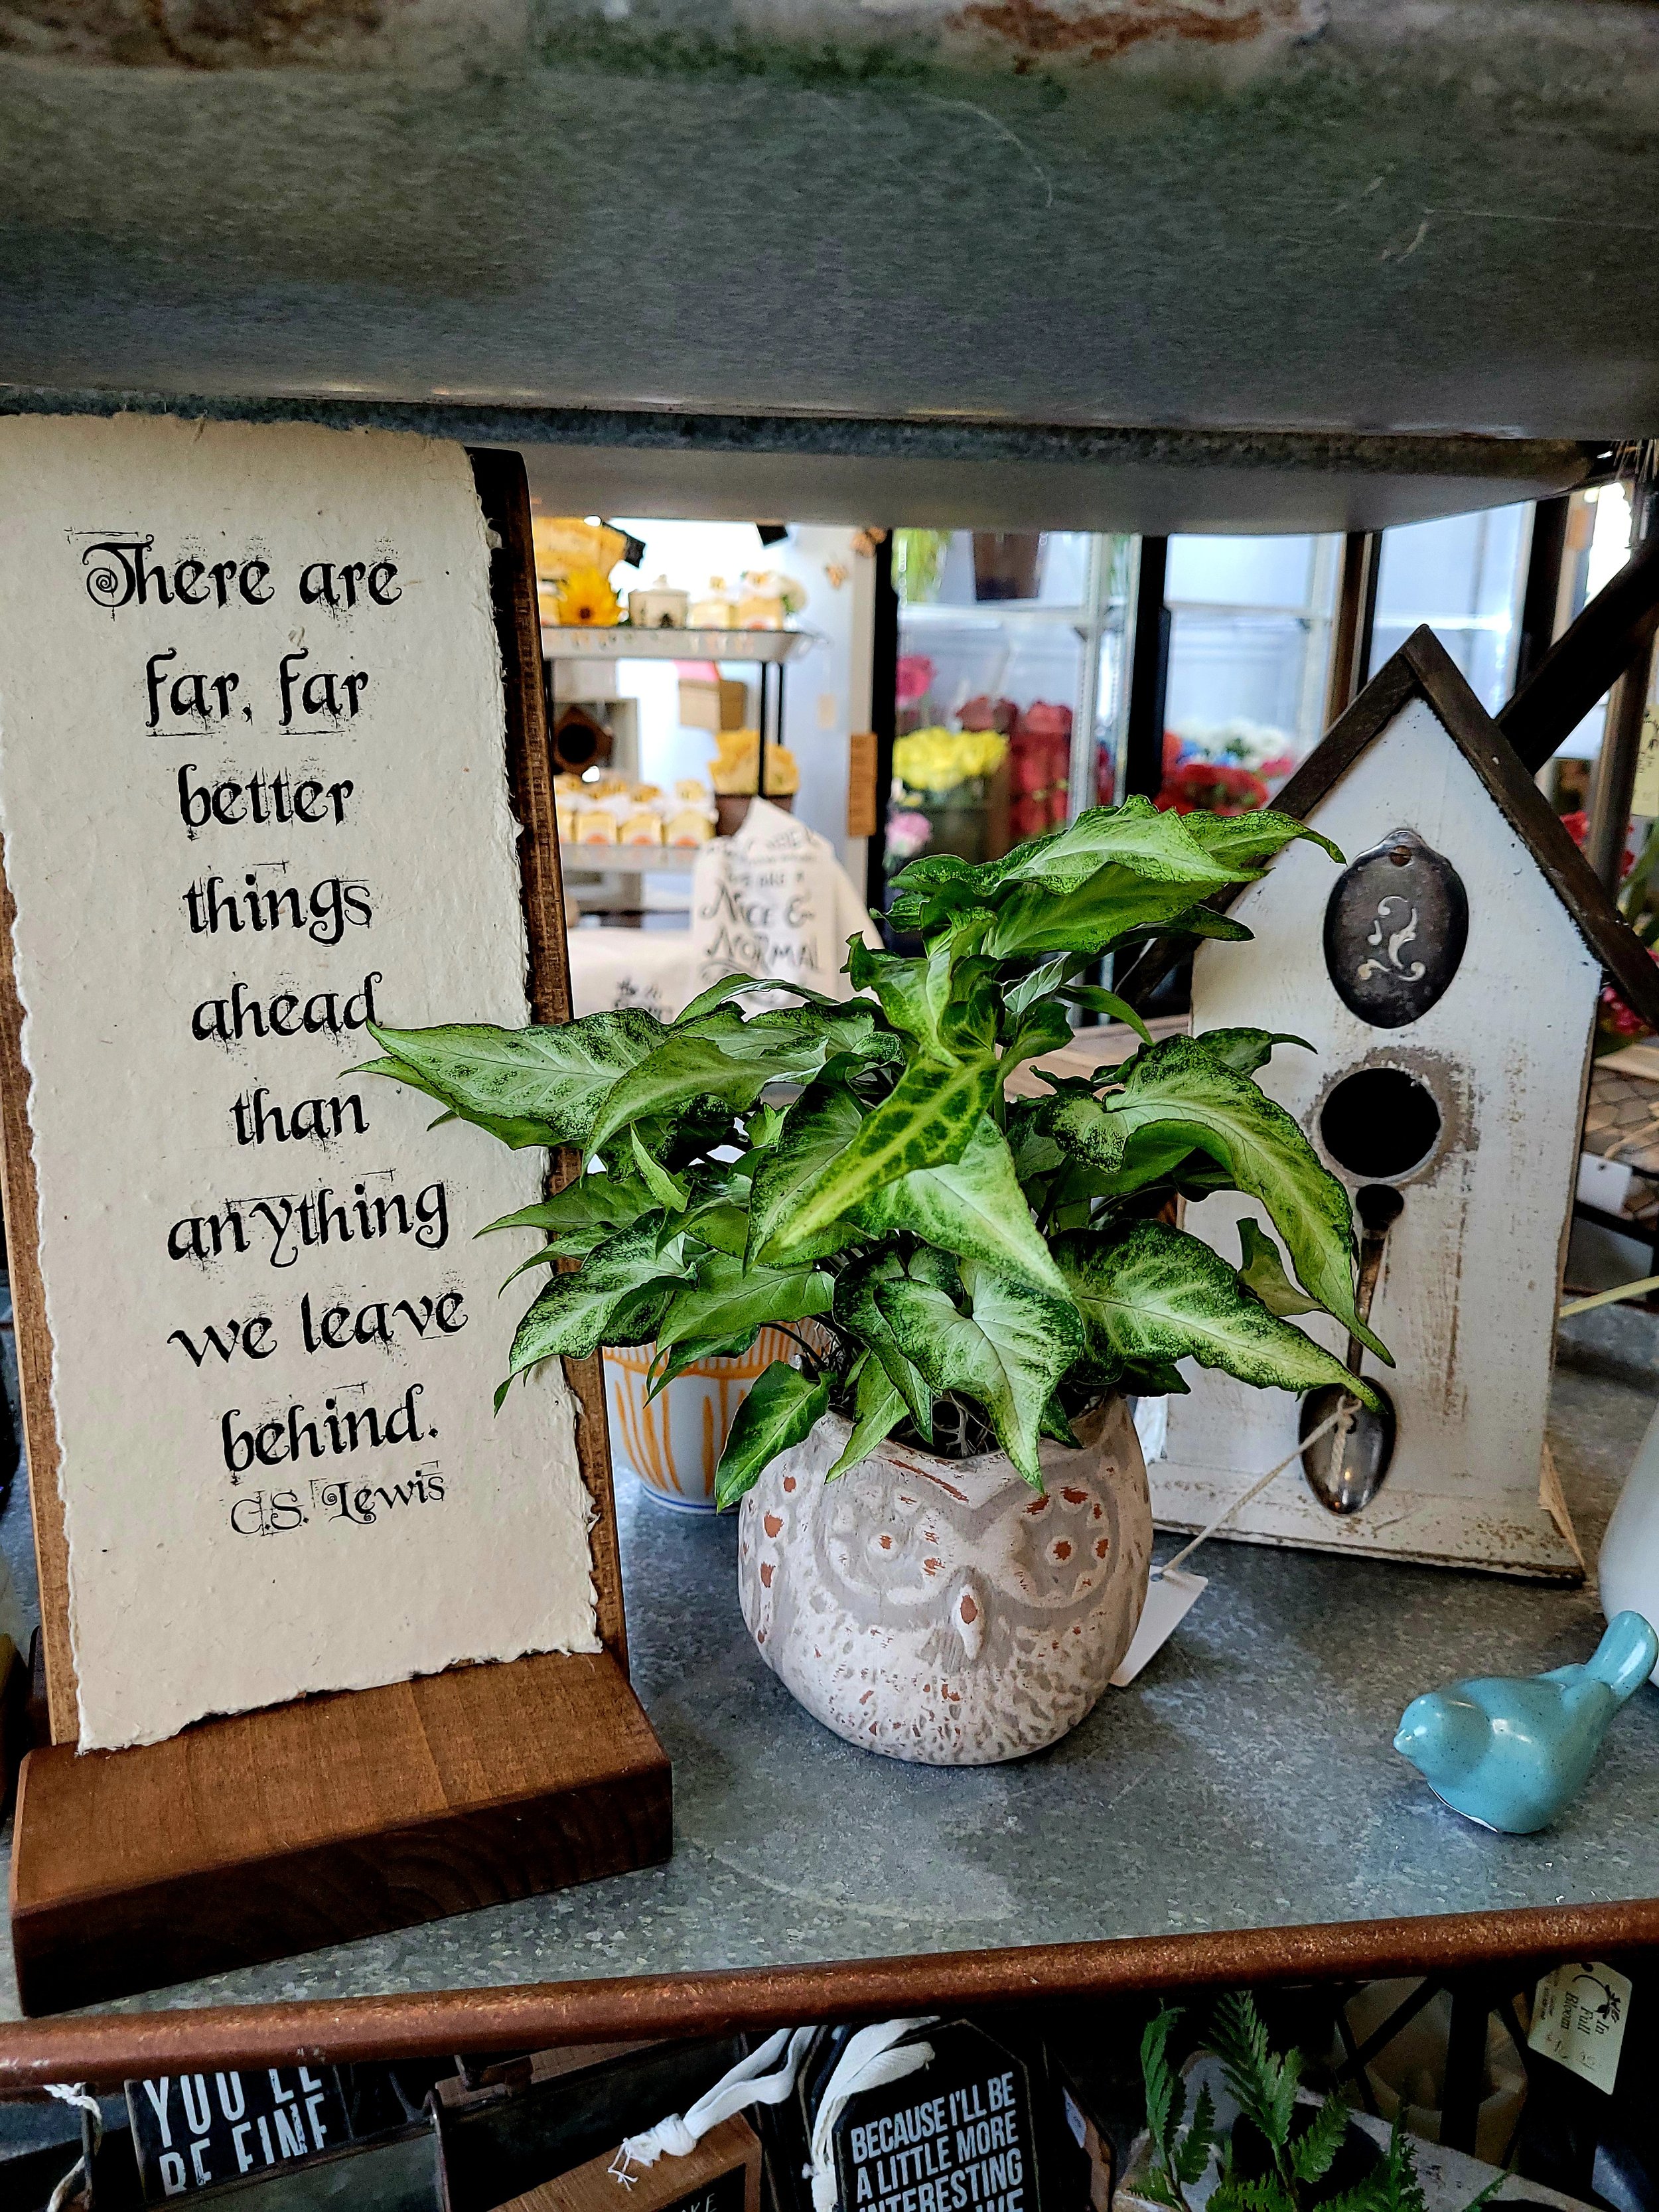 There are
far, far
better
things
ahead
than
anything
we leave
behind.
C.S. Lewis
NICE &
NORMAL
YOU'LL
BE FINE
BECAUSE I'LL BE
A LITTLE MORE
INTERESTING
In
Full
Bloom